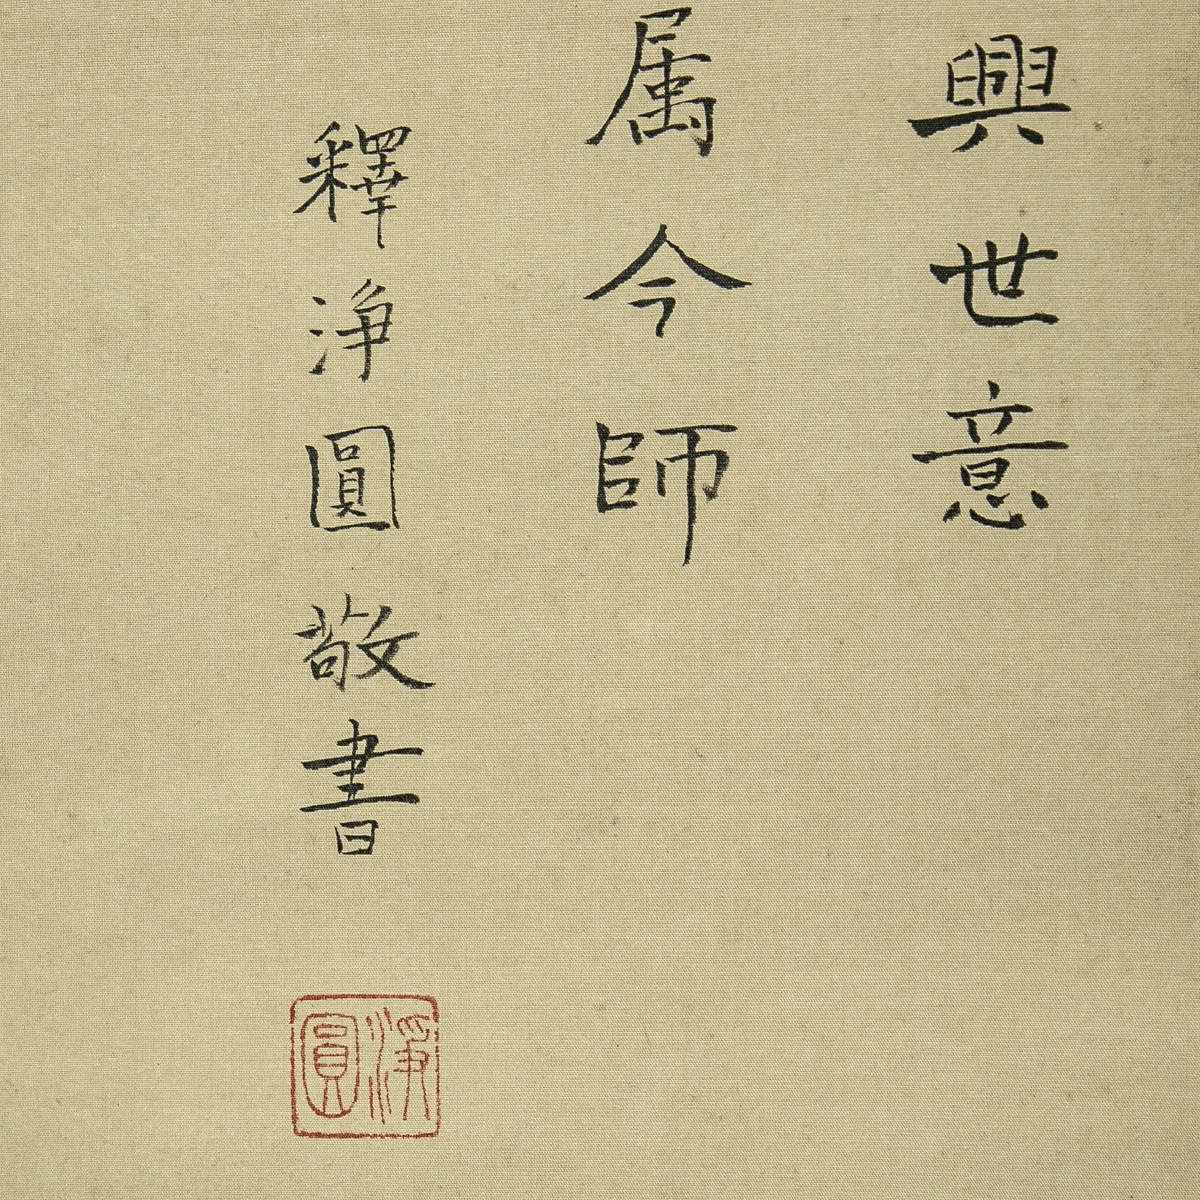 興世意
属今師
釋浄圓敬書
淨圓